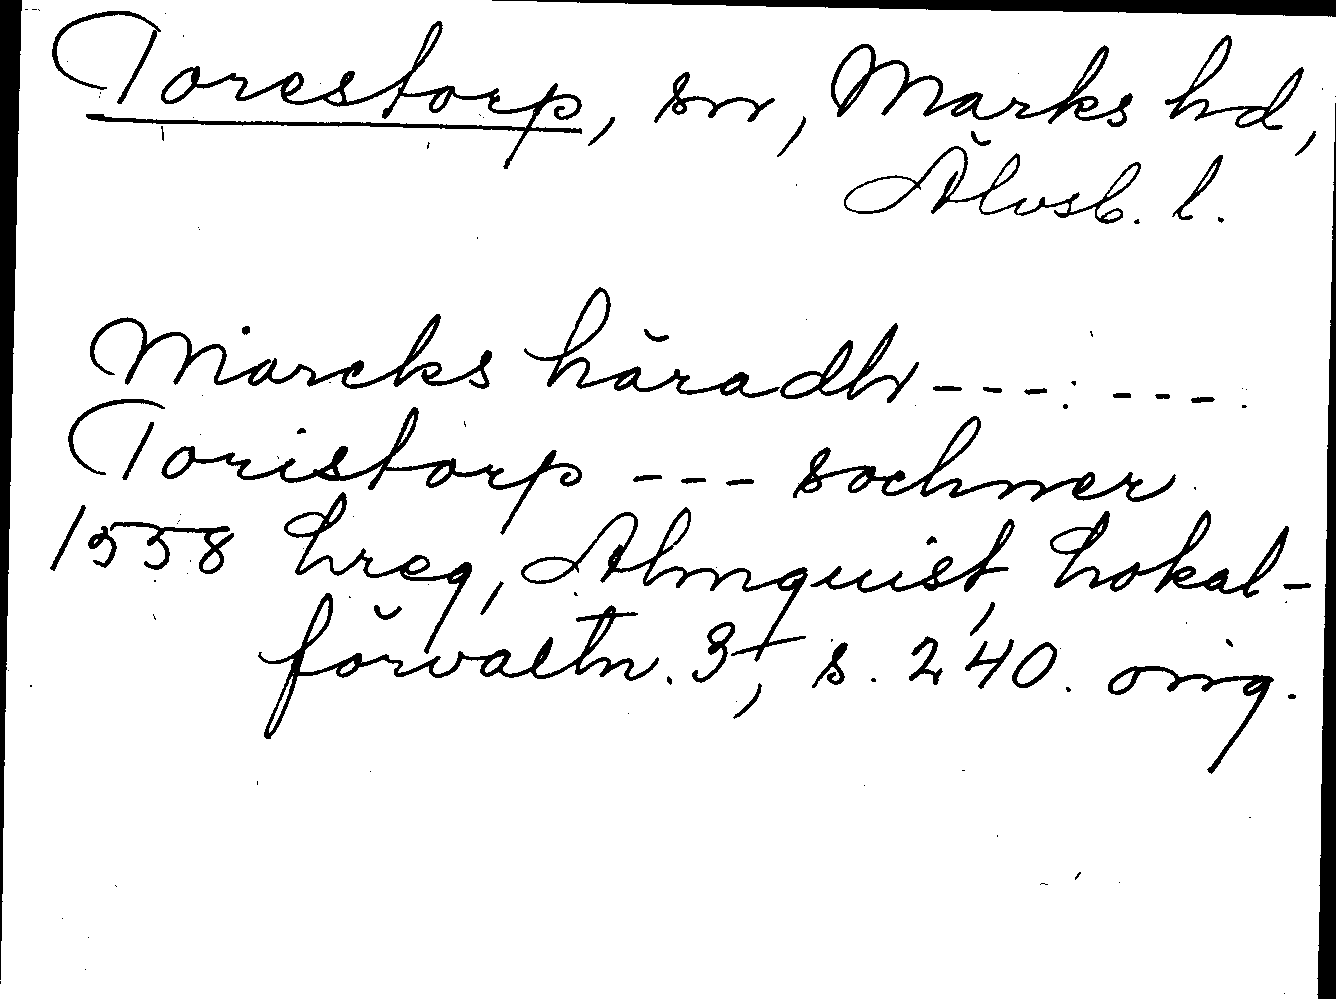 Torestorp, sn, Marks hd,
Älvsb. l.
Marcks häradh ---. ---.
Toristorp --- sochner
1558 Lreg, Almquist, Lokal-
förvaltn. 3, s. 240. orig.